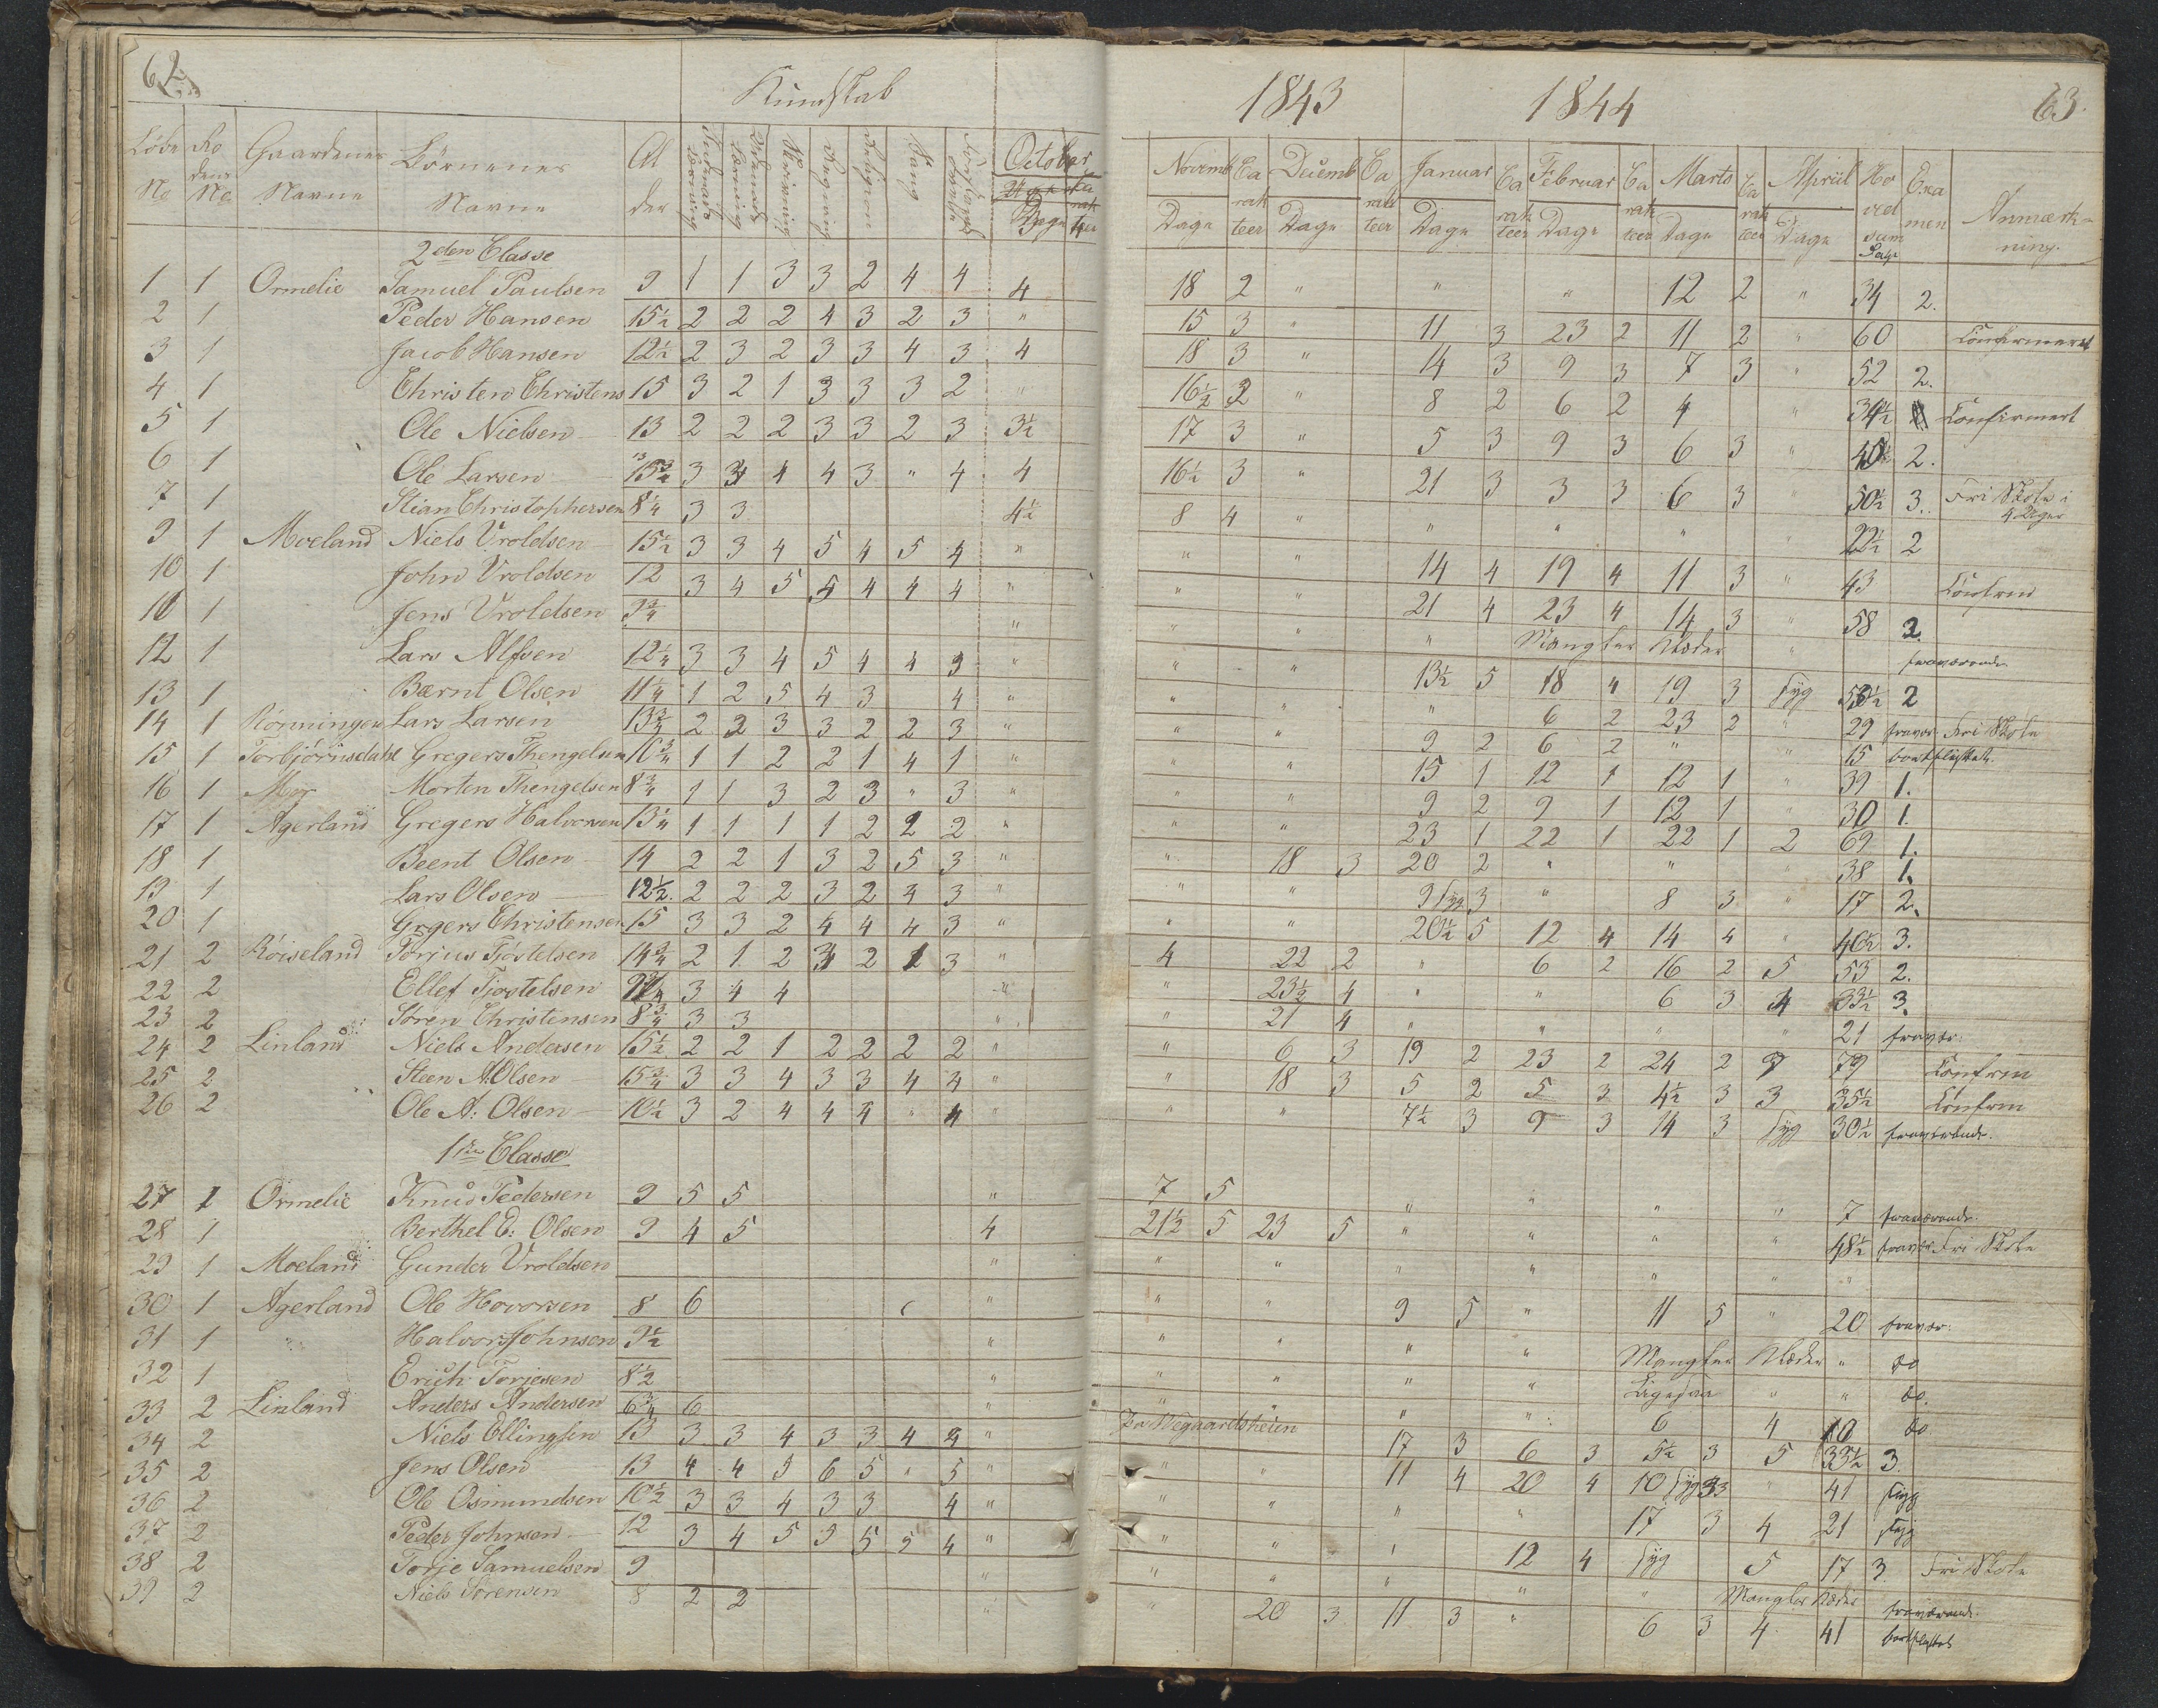 62.
Kundskab
Løbe No Rodens No Gaardenes Navne Börnenes Navne Alder Religion Sang October Dage
2den Classe
1 1 Ormelie Samuel Paulsen 9 1 1 3 3 2 4 4 4
2 1 Peder Hansen 15½ 2 2 2 4 3 2 3 "
3 1 Jacob Hansen 12½ 2 3 2 3 3 4 3 4
4 1 Christen Christens 15 3 2 1 3 3 3 2 "
5 1 Ole Nielsen 13 2 2 2 3 3 2 3 3½
6 1 Ole Larsen 3 4 4 3 " 4 4
7 1 Stian Christophersen 8¼ 3 3 4½
9 1 Moeland Niels Vroldsen 15½ 3 3 4 5 4 5 4 "
10 1 John Vroldsen 12 3 4 5 5 4 4 4 "
1 Jens Vroldsen 9¾ "
12 1 Lars Alfsen 12¼ 3 3 4 5 4 4 3 "
13 1 Bærnt Olsen 11¼ 1 2 5 4 3 4 "
14 1 Rönningen Lars Larsen 13¾ 2 2 3 3 2 2 3 "
15 1 Torbjörnsdahl Gregers Thengelsen 10¾ 1 1 2 2 1 4 1 "
16 1 Morten Thengelsen 8¾ 1 1 3 2 3 " 3 "
17 1 Agerland Gregers Halvorsen 13¼ 1 1 1 1 2 2 2 "
18 1 Beent Olsen 14 2 2 1 3 2 5 3 "
19 1 Lars Olsen 12½ 2 2 2 3 2 4 3 "
20 1 Grgers Christensen 15 3 3 2 4 4 4 3 "
21 2 Röiseland Torjus Tjöstelsen 14¾ 2 1 2 2 3 "
22 2 Ellef Tjostelsen 3 4 4 "
23 2 Sören Christensen 8¾ 3 3 "
24 2 Linland Niels Andersen 15½ 2 2 1 2 2 2 2 "
25 2 Steen A: Olsen 15¾ 3 3 4 3 3 4 4 "
26 2 Ole A: Olsen 10½ 3 2 4 4 4 " 4 "
1ste Classe
27 1 Ormelie Knud Pedersen 9 5 5 "
28 1 Berthel E: Olsen 9 4 5 4
29 1 Moeland Gunder Vroldsen "
30 1 Agerland Ole Hovorsen 8 6 "
31 1 " Halvor Johnsen 9½ "
32 1 Erich Torjesen 8½ "
33 2 Linland Anders Andersen 6¾ 6 "
34 2 Niels Ellingsen 13 3 3 4 3 3 4 4 "
35 2 Jens Olsen 13 4 4 5 6 5 " 5 "
36 2 Ole Osmundsen 10½ 3 3 4 3 3 4 "
37 2 Peder Johnsen 12 3 4 5 5 5 5 4 "
38 2 Torje Samuelsen 9 "
39 2 Niels Sörensen 8 2 2 "
1843 1844 63.
Novemb Dage Carakteer Decemb Dage Carakteer Januar Dage Carakteer Februar Dage Carakteer Marts Dage Carakteer April Dage Hovedsum Dage Examen Anmærkning.
18 2 " " " 12 2 " 34 2.
15 3 " 11 3 23 2 11 2 " 60 Confirmeret
18 3 " 14 3 9 3 7 3 " 52 2.
16½ 2 " 8 2 6 2 4 " 34½ Confirmert
17 3 " 5 3 9 3 6 3 " 2.
16½ 3 " 21 3 3 3 6 3 " 50½ 3. Fri Skole i 4 Uger
8 4 " " " " " 22½ 2
" " 14 4 19 4 11 3 " 43
" " 21 4 23 4 14 3 " 58 2.
" " " Mangler Klæder " fraværende
" " 13½ 5 18 4 19 3 Syg 2
" " " 6 2 23 2 " 29 fravær. Fri Skole
" " 9 2 6 2 " " 15 bortflyttet.
" " 15 1 12 1 12 1 " 39 1.
" " 9 2 9 1 12 1 " 30 1.
" " 23 1 22 1 22 1 2 69 1.
" 18 3 20 2 " " " 38 1.
" " 9 Syg 3 " 8 3 " 17 2.
" " 20½ 5 12 4 14 4 " 40½ 3.
4 22 2 " 6 2 16 2 5 53 2.
" 23½ 4 " " 6 3 4 33½ 3.
" 21 4 " " " " 21 fravær.
" 6 3 19 2 23 2 24 2 7 79
" 18 3 5 2 5 3 4½ 3 3 35½
" " 7½ 3 9 3 14 3 Syg 30½ fraværende.
7 5 " " " " 7 fraværende.
21½ 5 23 5 " " " " 48½ fravær. Fri Skole
" " " " " " "
" " 9 5 " 11 5 " 20 fravær:
" " " " Mangler Klæder " do
" " " " Ligesaa " " do.
" " " " 6 4 10 do
Paa Wegaardsheien 17 3 6 3 5½ 3 5 33½ 3.
" " 11 4 20 4 10 Syg 3 " 41 Syg
" " " " 17 3 4 21 Syg
" " " 12 4 Syg 5 17 3. Fri Skole
" " " " " Mangler Klæder fraværende.
" 20 3 11 3 " 6 3 4 41 bortflyttet